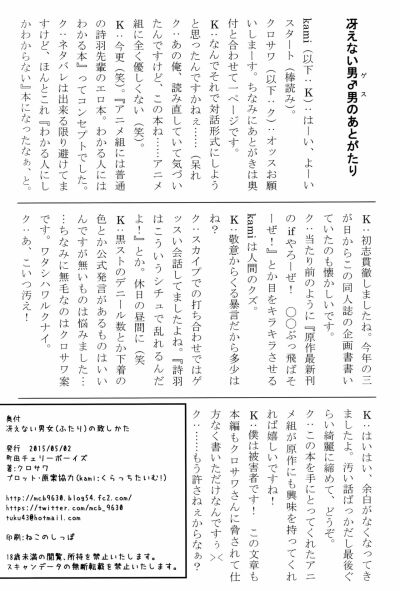 冴えない男♂男のあとがたり
ゲス
kami(以下:K):はーい、よーい
スタート(棒読み)。
クロサワ(以下:ク):オッスお願
いしまーす。ちなみにあとがきは奥
付と合わせて一ページです。
K:なんでそれで対話形式にしよう
と思ったんですかねぇ……(呆れ
ク:あの俺、読み直していて気づい
たんですけど、この本ね……アニメ
組に全く優しくない(笑)。
K:今更(笑)。『アニメ組には普通
の詩羽先輩のエロ本。わかる人には
わかる本』ってコンセプトでした。
ク:ネタバレは出来る限り避けてま
すけど、ほんとこれ『わかる人にし
かわからない』本になったなぁ、と。
K:初志貫徹しましたね。今年の三
が日からこの同人誌の企画書書い
ていたのも懐かしいです。
ク:当たり前のように『原作最新刊
の if やろーぜ! 〇〇ぶっ飛ばそ
ーぜ!』とか目をキラキラさせる
kami は人間のクズ。
K:敬意からくる暴言だから多少は
ね?
ク:スカイプでの打ち合わせではゲ
ッスい会話してましたよね。『詩羽
はこういうシチュで乱れるんだ
よ!』とか。休日の昼間に(笑
K:黒ストのデニール数とか下着の
色とか公式発言があるものはいい
んですが無いものは悩みました…
…ちなみに無毛なのはクロサワ案
です。ワタシハワルクナイ。
ク:あ、こいつ汚え!
K:はいはい、余白がなくなってき
ましたよ。汚い話ばっかだし最後ぐ
らい綺麗に締めて、どうぞ。
ク:この本を手にとってくれたアニ
メ組が原作にも興味を持ってくれ
れば嬉しいですね!
K:僕は被害者です! この文章も
本編もクロサワさんに脅されて仕
方なく書いただけなんですぅ><
ク:……もう許さねえからなぁ?
奥付
冴えない男女(ふたり)の致しかた
発行 2015/05/02
町田チェリーボーイズ
著:クロサワ
プロット・原案協力:kami(くらっちたいむ!)
http://mcb9630.blog54.fc2.com/
https://twitter.com/mcb_9630
tuku43@hotmail.com
印刷:ねこのしっぽ
18歳未満の閲覧、所持を禁止いたします。
スキャンデータの無断転載を禁止いたします。